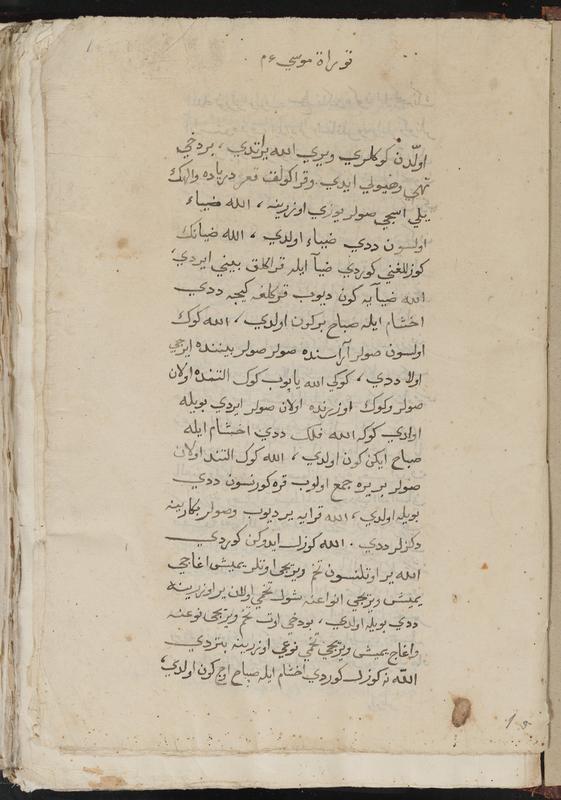 توراة موسي ع م
اولدن كوكلري ويري الله يراتدي ، يردخي
تهي وهيولي ايدي وقراكولق قعر درياده واللهك
يلي اسيجي صولر يوزي اوزرينه ، الله ضياء
اولسون ددي ضياء اولدي ، الله ضيانك
كوزللغني كوردي ضيآ ايله قراكلق بيني ايردي
الله ضيآيه كون ديوب قركلغه كيجه ددي
اخشام ايله صباح بركون اولدي ، الله كوك
اولسون صولر آراسنده صولر صولر بيننده ايرجي
اولا ددي ، كوكي الله ياپوب كوك التنده اولان
صولر وكوك اوزرنده اولان صولر ايردي بويله
اولدي كوكه الله فلك ددي اخشام ايله
صباح ايكن كون اولدي ، الله كوك التند اولان
صولر بريره جمع اولوب قره كورنسون ددي
بويله اولدي ، الله قرايه ير ديوب وصولر بكارينه
دكزلر ددي . الله كوزل ايدوكن كوردي
الله ير اوتلنسون تخم ويريجي اوتلر يميشي اغاجي
يميش ويريجي انواعنه شول تخمي اولان ير اوزرينه
ددي بويله اولدي ، يودخي اوت تخم ويريجي نوعنه
واغاج يميش ويريجي تخمي نوعي اوزرينه بتردي
الله نه كوزل كوردي اخشام ايله صباح اوج كون اولدي ،